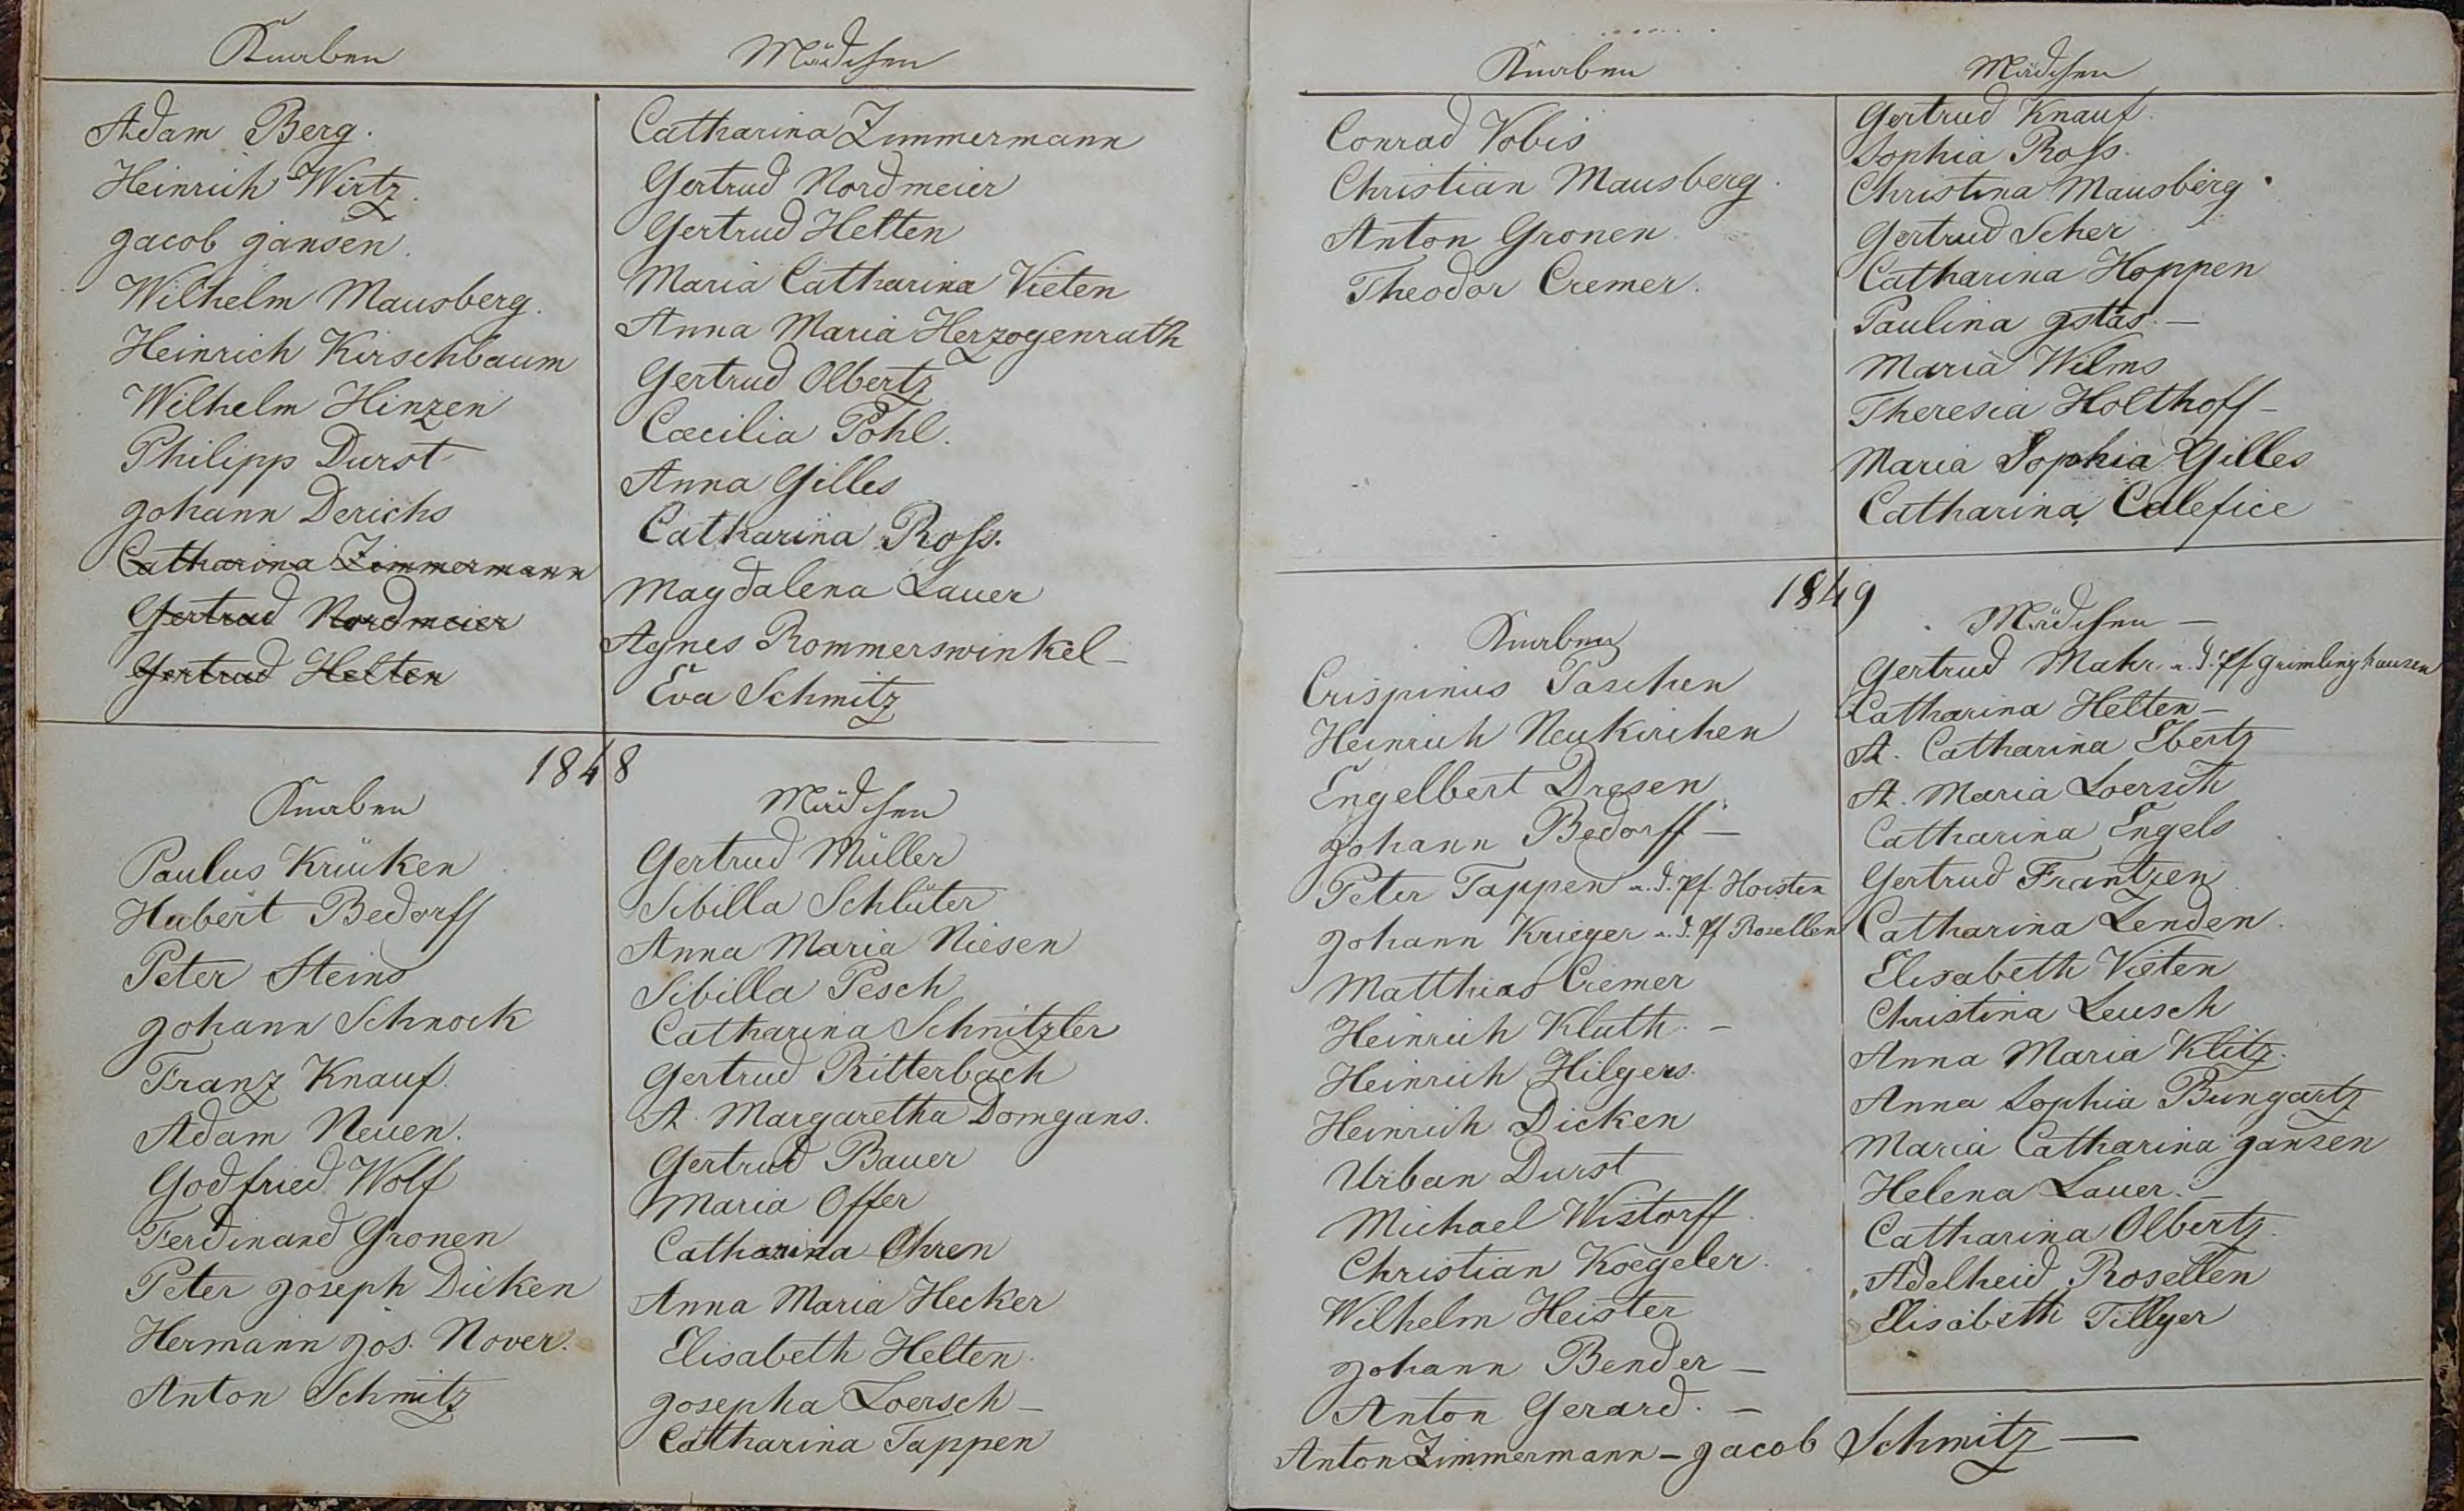 Knaben
Adam Berg.
Heinrich Wirtz.
Jacob Jansen.
Wilhelm Mausberg.
Heinrich Kirschbaum
Wilhelm Hinzen
Philipp Durst
Johann Derichs
Catharina Zimmermann
Gertrud Nordmeier
Gertrud Helten
Mädchen
Catharina Zimmermann
Gertrud Nordmeier
Gertrud Helten
Maria Catharina Vieten
Anna Maria Herzogenrath
Gertrud Olbertz
Cæcilia Pohl.
Anna Gilles
Catharina Roß.
Magdalena Lauer
Agnes Rommerswinkel -
Eva Schmitz
1848
Knaben
Paulus Krücken
Hubert Bedorff
Peter Steins
Johann Schnock
Franz Knauf.
Adam Neuen.
Godfried Wolf
Ferdinand Gronen
Peter Joseph Dicken
Hermann Jos. Nover.
Anton Schmitz
Mädchen
Gertrud Müller
Sibilla Schlüter
Anna Maria Niesen
Sibilla Pesch
Catharina Schnitzler
Gertrud Ritterbach
A. Margaretha Domgans.
Gertrud Bauer
Maria Offer
Catharina Ohren
Anna Maria Hecker
Elisabeth Helten.
Josepha Loersch -
Catharina Tappen
Knaben
Conrad Vobis
Christian Mausberg.
Anton Gronen.
Theodor Cremer.
Mädchen
Gertrud Knauf.
Sophia Roß.
Christina Mausberg.
Gertrud Scher
Catharina Hoppen
Paulina Istas. -
Maria Wilms
Theresia Holthoff -
Maria Sophia Gilles
Catharina Calefice
1849
Knaben
Crispinus Paschen
Heinrich Neukirchen
Engelbert Dresen
Johann Bedorff -
Peter Tappen a. d. Pf. Hoisten
Johann Krieger a. d. Pf Rosellen
Matthias Cremer
Heinrich Kluth. -
Heinrich Hilgers.
Heinrich Dicken
Urban Durst
Michael Wistorff.
Christian Koegeler.
Wilhelm Heister
Johann Bender -
Anton Gerard. -
Anton Zimmermann - Jacob Schmitz -
Mädchen -
Gertrud Mahr a. d. Pf Grimlinghausen
Catharina Helten -
A. Catharina Ebertz
A. Maria Loersch
Catharina Engels
Gertrud Frantzen
Catharina Lenden.
Elisabeth Vieten
Christina Leusch
Anna Maria Klitz.
Anna Sophia Bungartz
Maria Catharina Jansen
Helena Lauer. -
Catharina Olbertz.
Adelheid Rosellen
Elisabeth Tillger